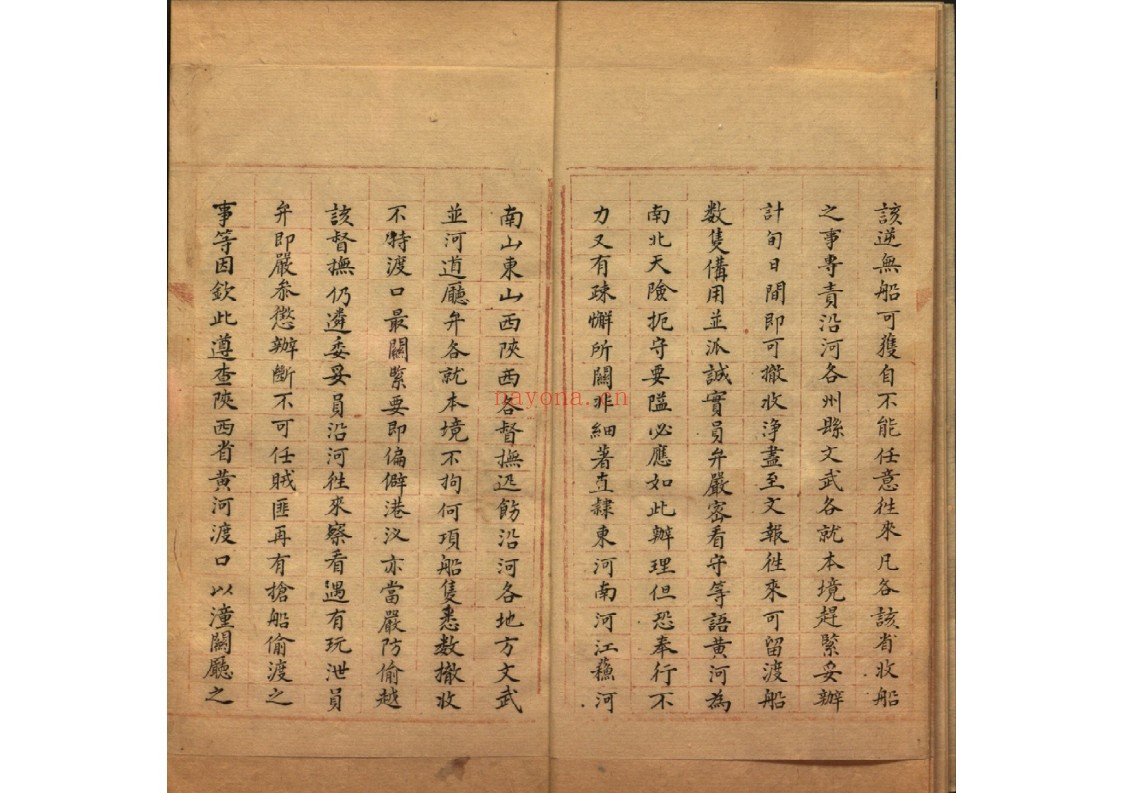 該逆無船可獲自不能任意徃來凡各該省收船
之事專責沿河各州縣文武各就本境趕緊妥辦
計旬日間即可撤收浄盡至文報徃來可留渡船
数隻偹用並派誠實員弁嚴密看守等語黃河為
南北天險扼守要隘必應如此辦理但恐奉行不
力又有疎懈所關非細著直隸東河南河江蘓河
南山東山西陝西各督撫迅飭沿河各地方文武
並河道廳弁各就本境不拘何項船隻悉数撤收
不特渡口最關緊要即偏僻港汊亦當嚴防偷越
該督撫仍遴委妥員沿河徃來察看遇有玩泄員
弁即嚴叅懲辦斷不可任賊匪再有搶船偷渡之
事等因欽此遵查陝西省黃河渡口以潼關廳之
nayona.cn